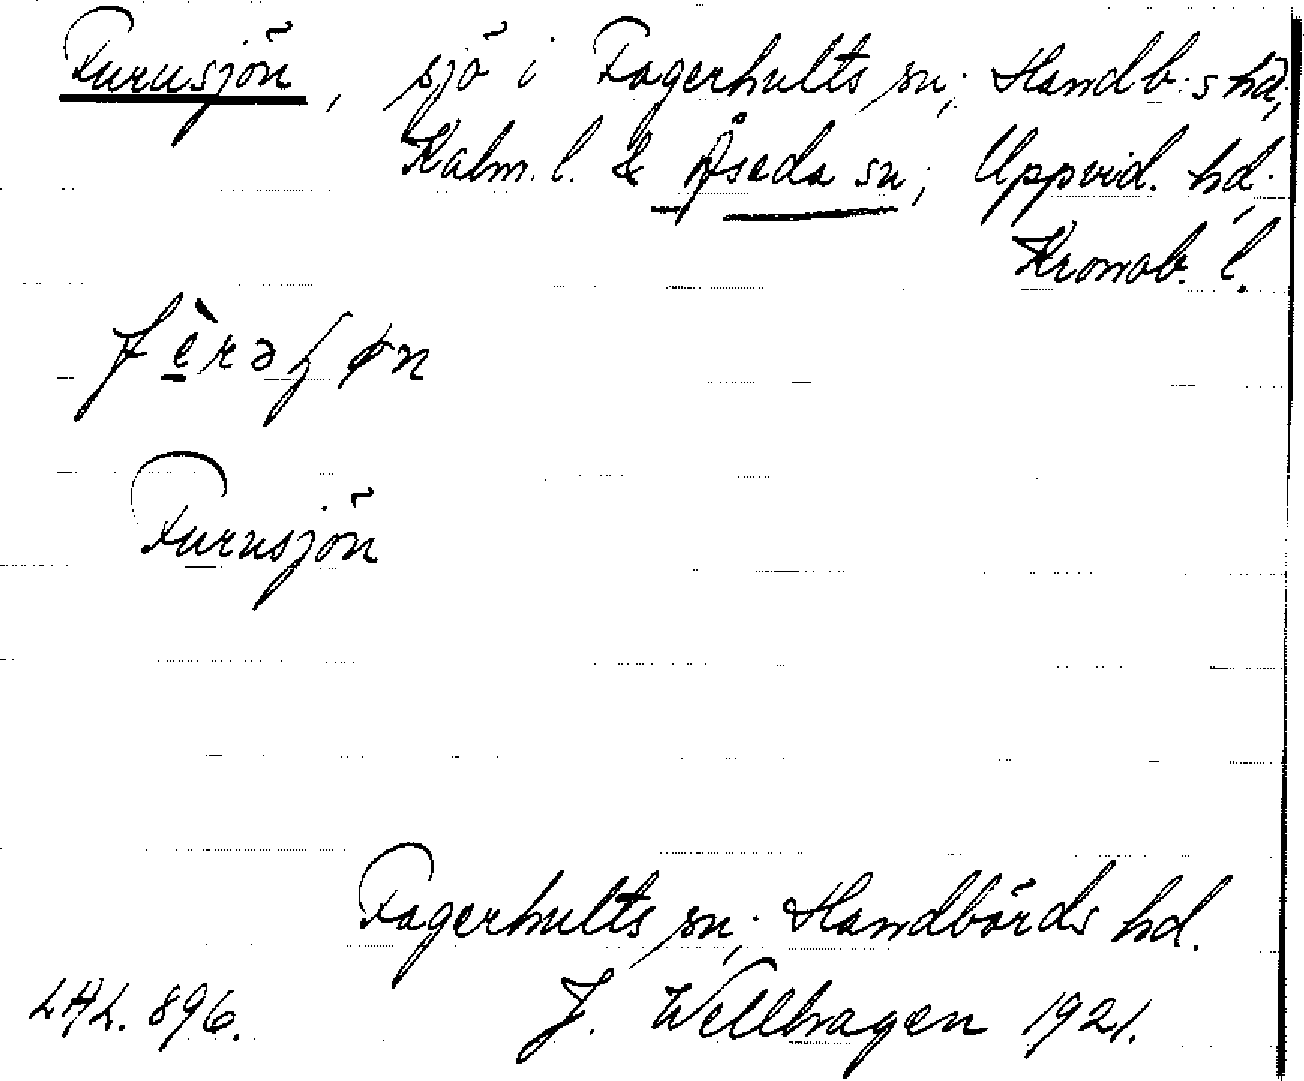 Furusjön, sjö i Fagerhults sn; Handb:s hd,
Kalm. l. & Åseda sn; Uppvid. hd.
Kronob. l.
Furusjön
Fagerhults sn; Handbörds hd.
LAL. 896. J. Wellhagen 1921.